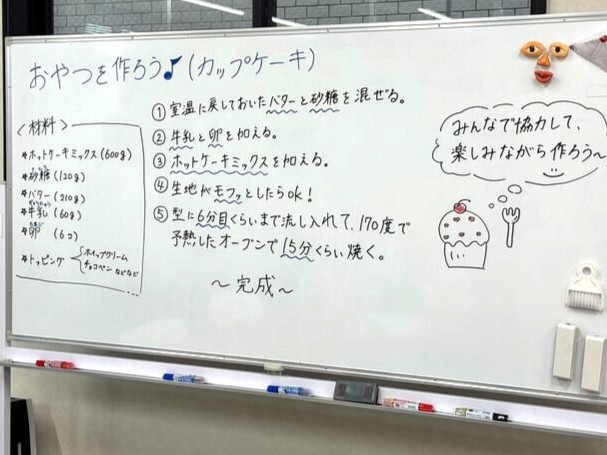 おやつを作ろう♪(カップケーキ)
<材料>
*ホットケーキミックス(600g)
*砂糖(120g)
*バター(210g)
*牛乳(60g)
*卵(6コ)
*トッピング ホイップクリーム
チョコペンなどなど
① 室温に戻しておいたバターと砂糖を混ぜる。
② 牛乳と卵を加える。
③ ホットケーキミックスを加える。
④ 生地がモフッとしたらok!
⑤ 型に6分目くらいまで流し入れて、170度で
予熱したオーブンで15分くらい焼く。
~完成~
みんなで協力して、
楽しみながら作ろう~